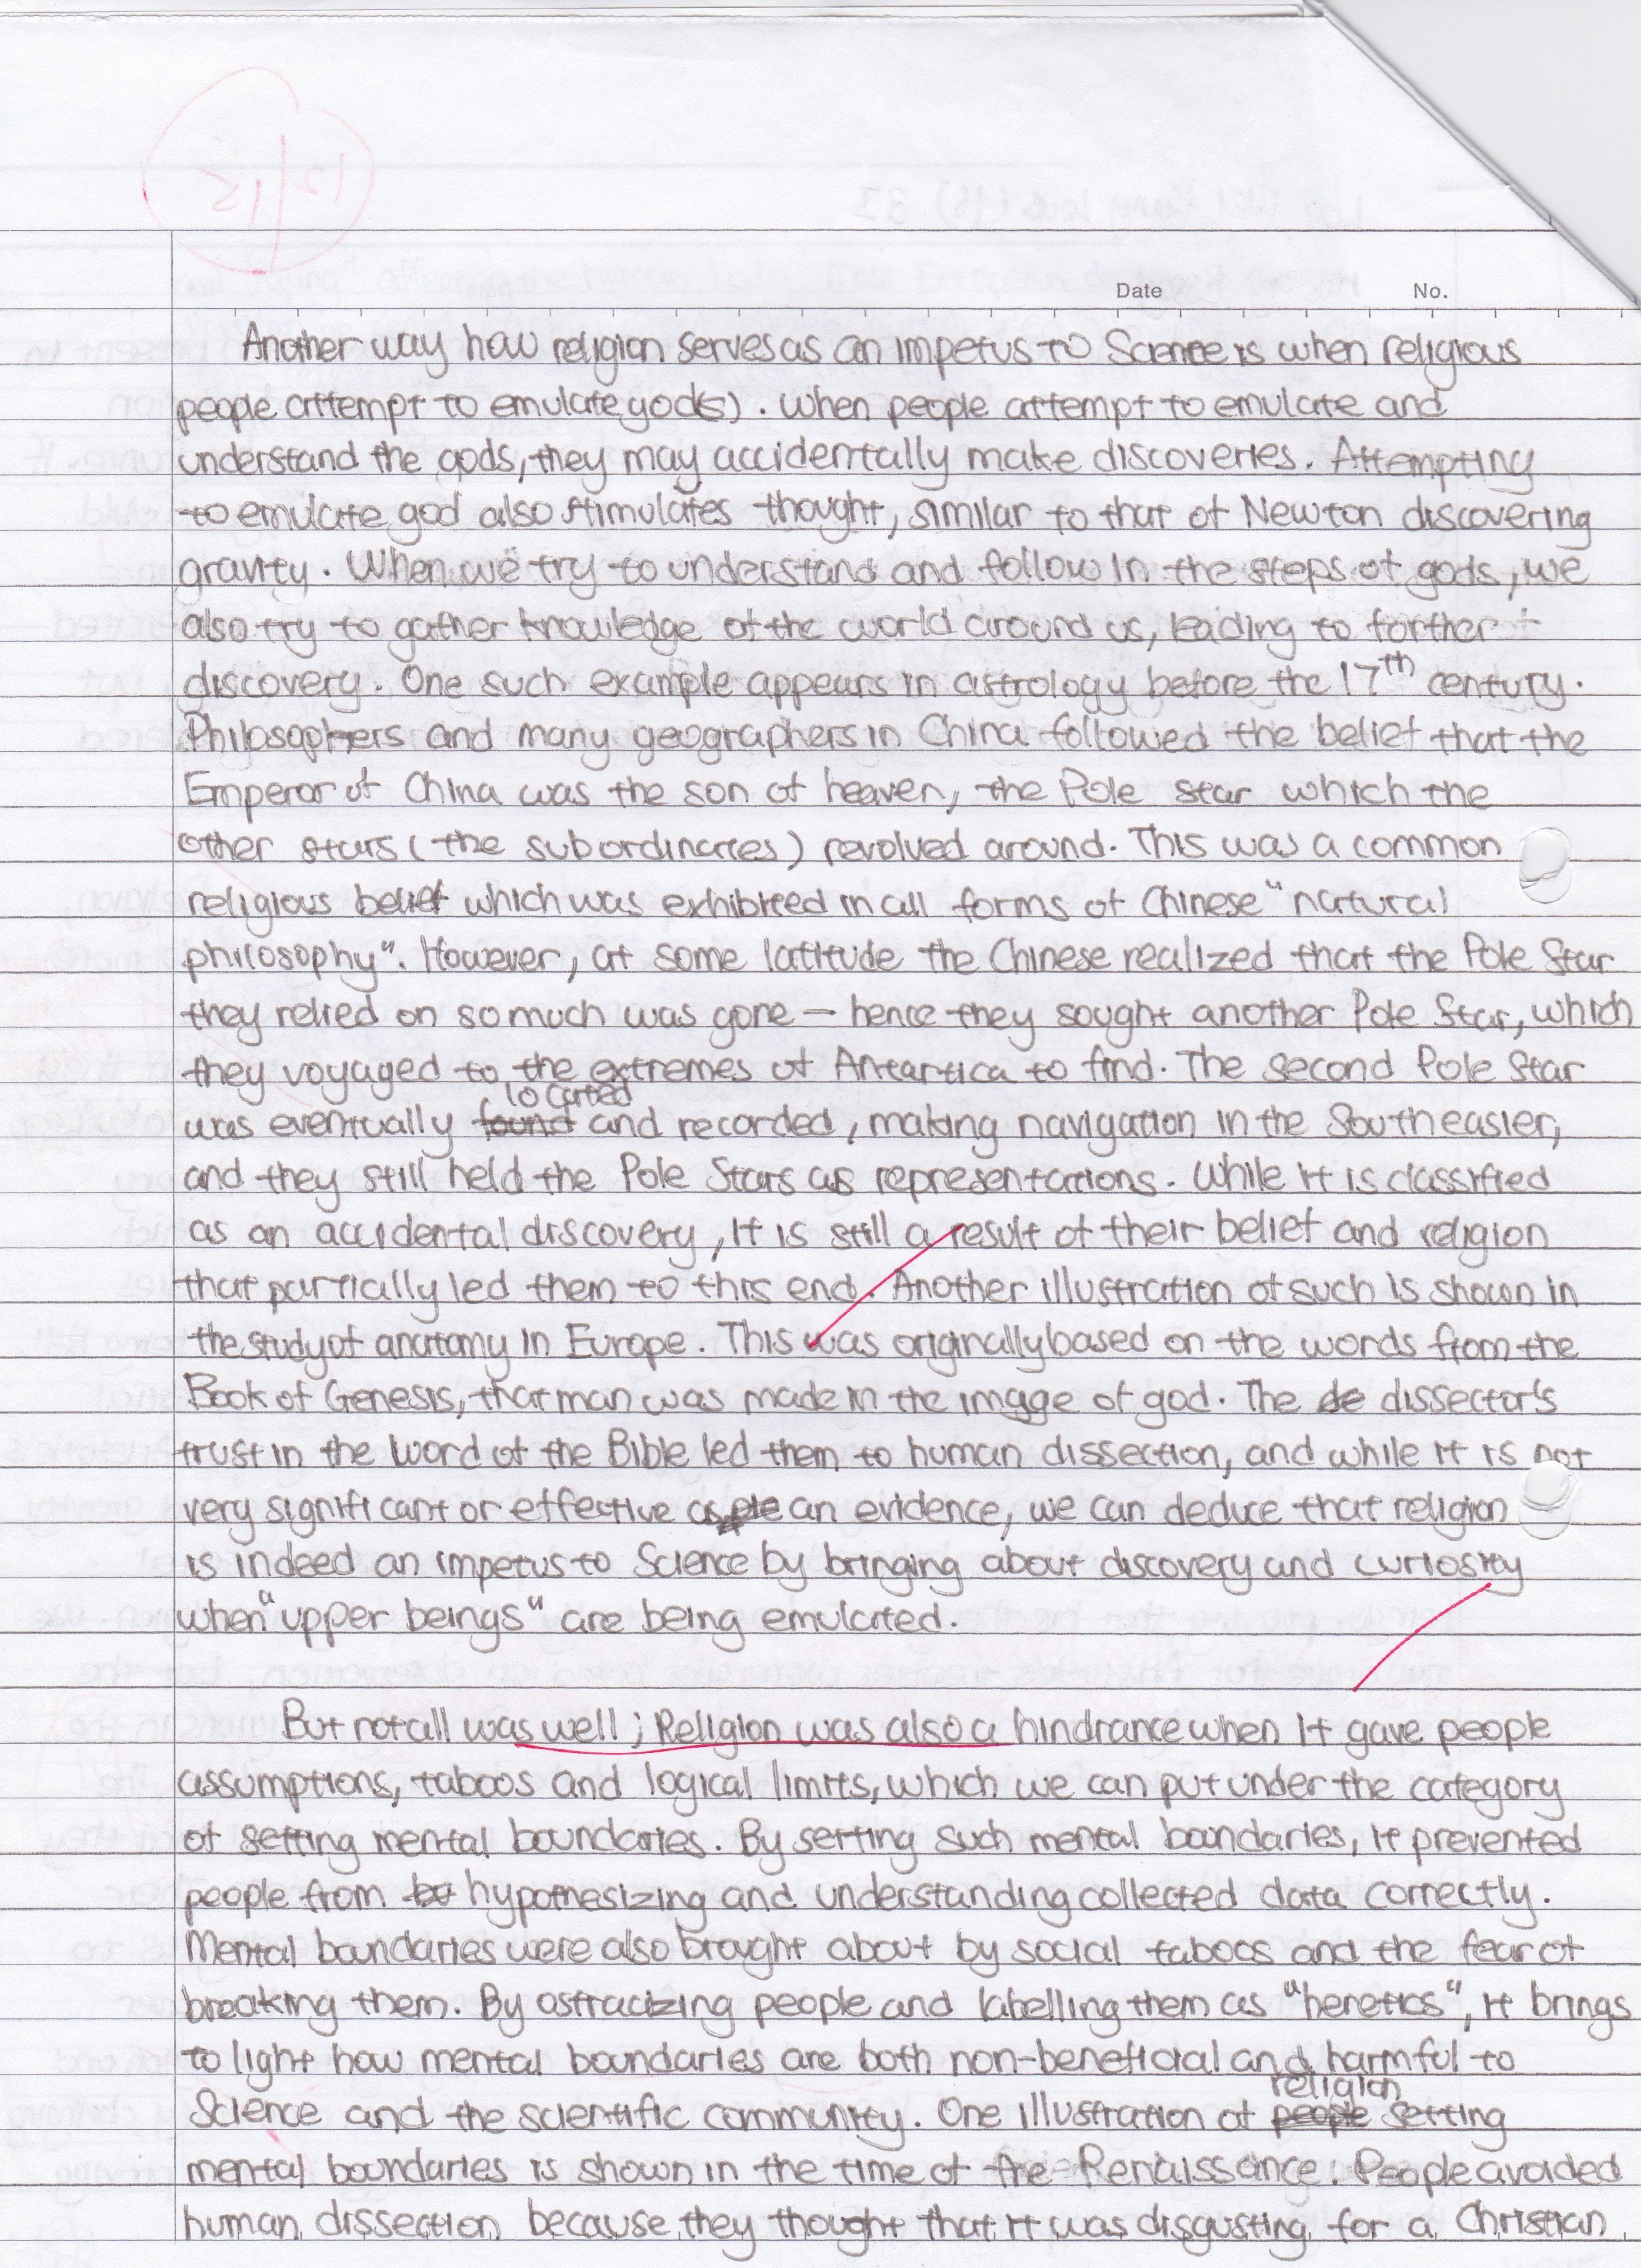 Date No.
Another way how religion serves as an impetus to Science is when religious
people attempt to emulate god(s). When people attempt to emulate and
understand the gods, they may accidentally make discoveries. Attempting
to emulate god also stimulates thought, similar to that of Newton discovering
gravity. When we try to understand and follow in the steps of gods, we
also try to gather knowledge of the world around us, leading to farther
discovery. One such example appears in astrology before the 17th century.
Philosophers and many geographers in China followed the belief that the
Emperor of China was the son of heaven, the Pole star which the
other stars (the subordinaries) revolved around. This was a common
religious belief which was exhibited in all forms of Chinese "natural
philosophy". However, at some latitude the Chinese realized that the Pole Star
they relied on so much was gone – hence they sought another Pole Star, which
they voyaged to the extremes of Antartica to find. The second Pole Star
was eventually found located and recorded, making navigation in the South easier,
and they still held the Pole Stars as representations. While it is classified
as an accidental discovery, it is still a result of their belief and religion
that partially led them to this end. Another illustration of such is shown in
the study of anatomy in Europe. This was originally based on the words from the
Book of Genesis, that man was made in the image of god. The de dissector's
trust in the word of the Bible led them to human dissection, and while it is not
very significant or effective as an evidence, we can deduce that religion
is indeed an impetus to Science by bringing about discovery and curiosity
when "upper beings" are being emulated.
But not all was well; Religion was also a hindrance when it gave people
assumptions, taboos and logical limits, which we can put under the category
of setting mental boundaries. By setting such mental boundaries, it prevented
people from hypothesizing and understanding collected data correctly.
Mental boundaries were also brought about by social taboos and the fear of
breaking them. By ostracizing people and labelling them as "heretics", it brings
to light how mental boundaries are both non-beneficial and harmful to
Science and the scientific community. One illustration of people religion setting
mental boundaries is shown in the time of the Renaissance. People avoided
human dissection because they thought that it was disgusting for a Christian